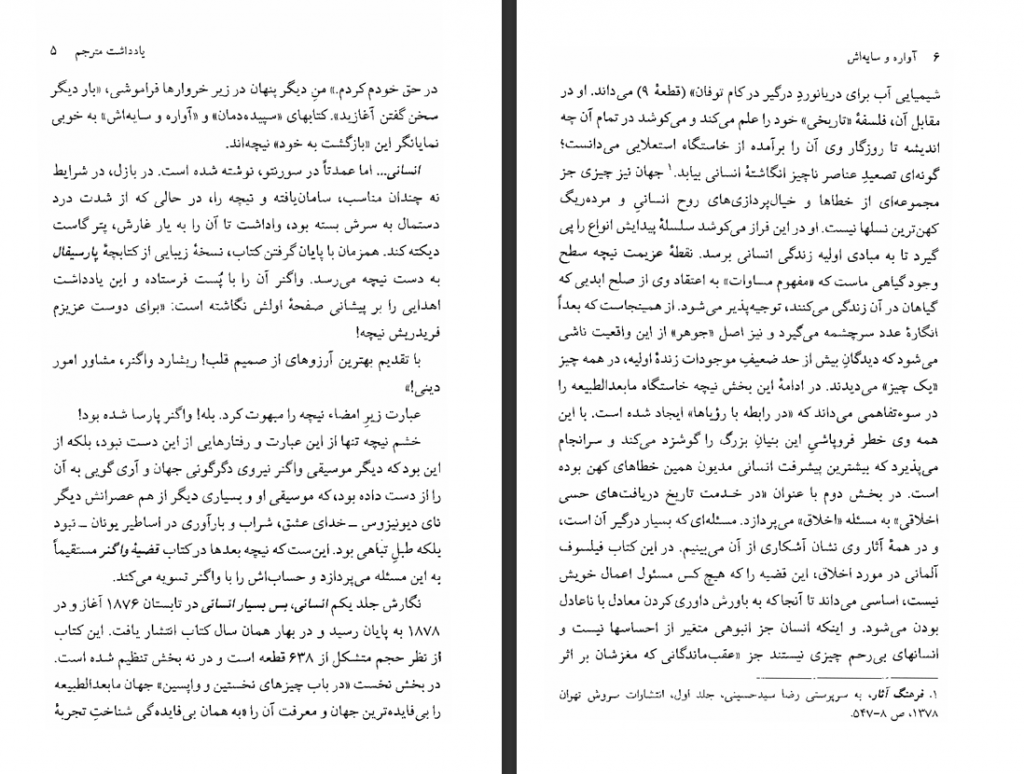 یادداشت مترجم ۵
در حق خودم کردم.» منِ دیگر پنهان در زیر خروارها فراموشی، «بار دیگر
سخن گفتن آغازید». کتابهای «سپیده‌دمان» و «آواره و سایه‌اش» به خوبی
نمایانگر این «بازگشت به خود» نیچه‌اند.
انسانی... اما عمدتاً در سورنتو، نوشته شده است. در بازل، در شرایط
نه چندان مناسب، سامان‌یافته و نیچه را، در حالی که از شدت درد
دستمال به سرش بسته بود، واداشت تا آن را به یار غارش، پتر گاست
دیکته کند. همزمان با پایان گرفتن کتاب، نسخهٔ زیبایی از کتابچهٔ پارسیفال
به دست نیچه می‌رسد. واگنر آن را با پُست فرستاده و این یادداشت
اهدایی را بر پیشانی صفحهٔ اولش نگاشته است: «برای دوست عزیزم
فریدریش نیچه!
با تقدیم بهترین آرزوهای از صمیم قلب! ریشارد واگنر، مشاور امور
دینی!»
عبارت زیرِ امضاء نیچه را مبهوت کرد. بله! واگنر پارسا شده بود!
خشم نیچه تنها از این عبارت و رفتارهایی از این دست نبود، بلکه از
این بود که دیگر موسیقی واگنر نیروی دگرگونی جهان و آری گویی به آن
را از دست داده بود، که موسیقی او و بسیاری دیگر از هم عصرانش دیگر
نای دیونیزوس ــ خدای عشق، شراب و بارآوری در اساطیر یونان ــ نبود
بلکه طبلِ تباهی بود. این‌ست که نیچه بعدها در کتاب قضیهٔ واگنر مستقیماً
به این مسئله می‌پردازد و حساب‌اش را با واگنر تسویه می‌کند.
نگارش جلد یکم انسانی، بس بسیار انسانی در تابستان ۱۸۷۶ آغاز و در
۱۸۷۸ به پایان رسید و در بهار همان سال کتاب انتشار یافت. این کتاب
از نظر حجم متشکل از ۶۳۸ قطعه است و در نه بخش تنظیم شده است.
در بخش نخست «در باب چیزهای نخستین و واپسین» جهان مابعدالطبیعه
را بی‌فایده‌ترین جهان و معرفت آن را «به همان بی‌فایده‌گی شناختِ تجربهٔ
۶ آواره و سایه‌اش
شیمیایی آب برای دریانوردِ درگیر در کام توفان» (قطعهٔ ۹) می‌داند. او در
مقابل آن، فلسفهٔ «تاریخی» خود را علم می‌کند و می‌کوشد در تمام آن چه
اندیشه تا روزگار وی آن را برآمده از خاستگاه استعلایی می‌دانست؛
گونه‌ای تصعیدِ عناصر ناچیز انگاشتهٔ انسانی بیابد.۱ جهان نیز چیزی جز
مجموعه‌ای از خطاها و خیال‌پردازی‌های روح انسانیِ و مرده‌ریگ
کهن‌ترین نسلها نیست. او در این فراز می‌کوشد سلسلهٔ پیدایش انواع را پی
گیرد تا به مبادی اولیه زندگی انسانی برسد. نقطهٔ عزیمت نیچه سطح
وجود گیاهی ماست که «مفهوم مساوات» به اعتقاد وی از صلح ابدیی که
گیاهان در آن زندگی می‌کنند، توجیه‌پذیر می‌شود. از همینجاست که بعداً
انگارهٔ عدد سرچشمه می‌گیرد و نیز اصل «جوهر» از این واقعیت ناشی
می‌شود که دیدگانِ بیش از حد ضعیفِ موجودات زندهٔ اولیه، در همه چیز
«یک چیز» می‌دیدند. در ادامهٔ این بخش نیچه خاستگاه مابعدالطبیعه را
در سوءتفاهمی می‌داند که «در رابطه با رؤیاها» ایجاد شده است. با این
همه وی خطر فروپاشیِ این بنیانِ بزرگ را گوشزد می‌کند و سرانجام
می‌پذیرد که بیشترین پیشرفت انسانی مدیون همین خطاهای کهن بوده
است. در بخش دوم با عنوان «در خدمت تاریخ دریافت‌های حسی
اخلاقی» به مسئله «اخلاق» می‌پردازد. مسئله‌ای که بسیار درگیر آن است،
و در همهٔ آثار وی نشان آشکاری از آن می‌بینیم. در این کتاب فیلسوف
آلمانی در مورد اخلاق، این قضیه را که هیچ کس مسئول اعمال خویش
نیست، اساسی می‌داند تا آنجا که به باورش داوری کردن معادل با ناعادل
بودن می‌شود. و اینکه انسان جز انبوهی متغیر از احساسها نیست و
انسانهای بی‌رحم چیزی نیستند جز «عقب‌ماندگانی که مغزشان بر اثر
۱. فرهنگ آثار، به سرپرستی رضا سیدحسینی، جلد اول، انتشارات سروش تهران
۱۳۷۸، ص ۸-۵۴۷.